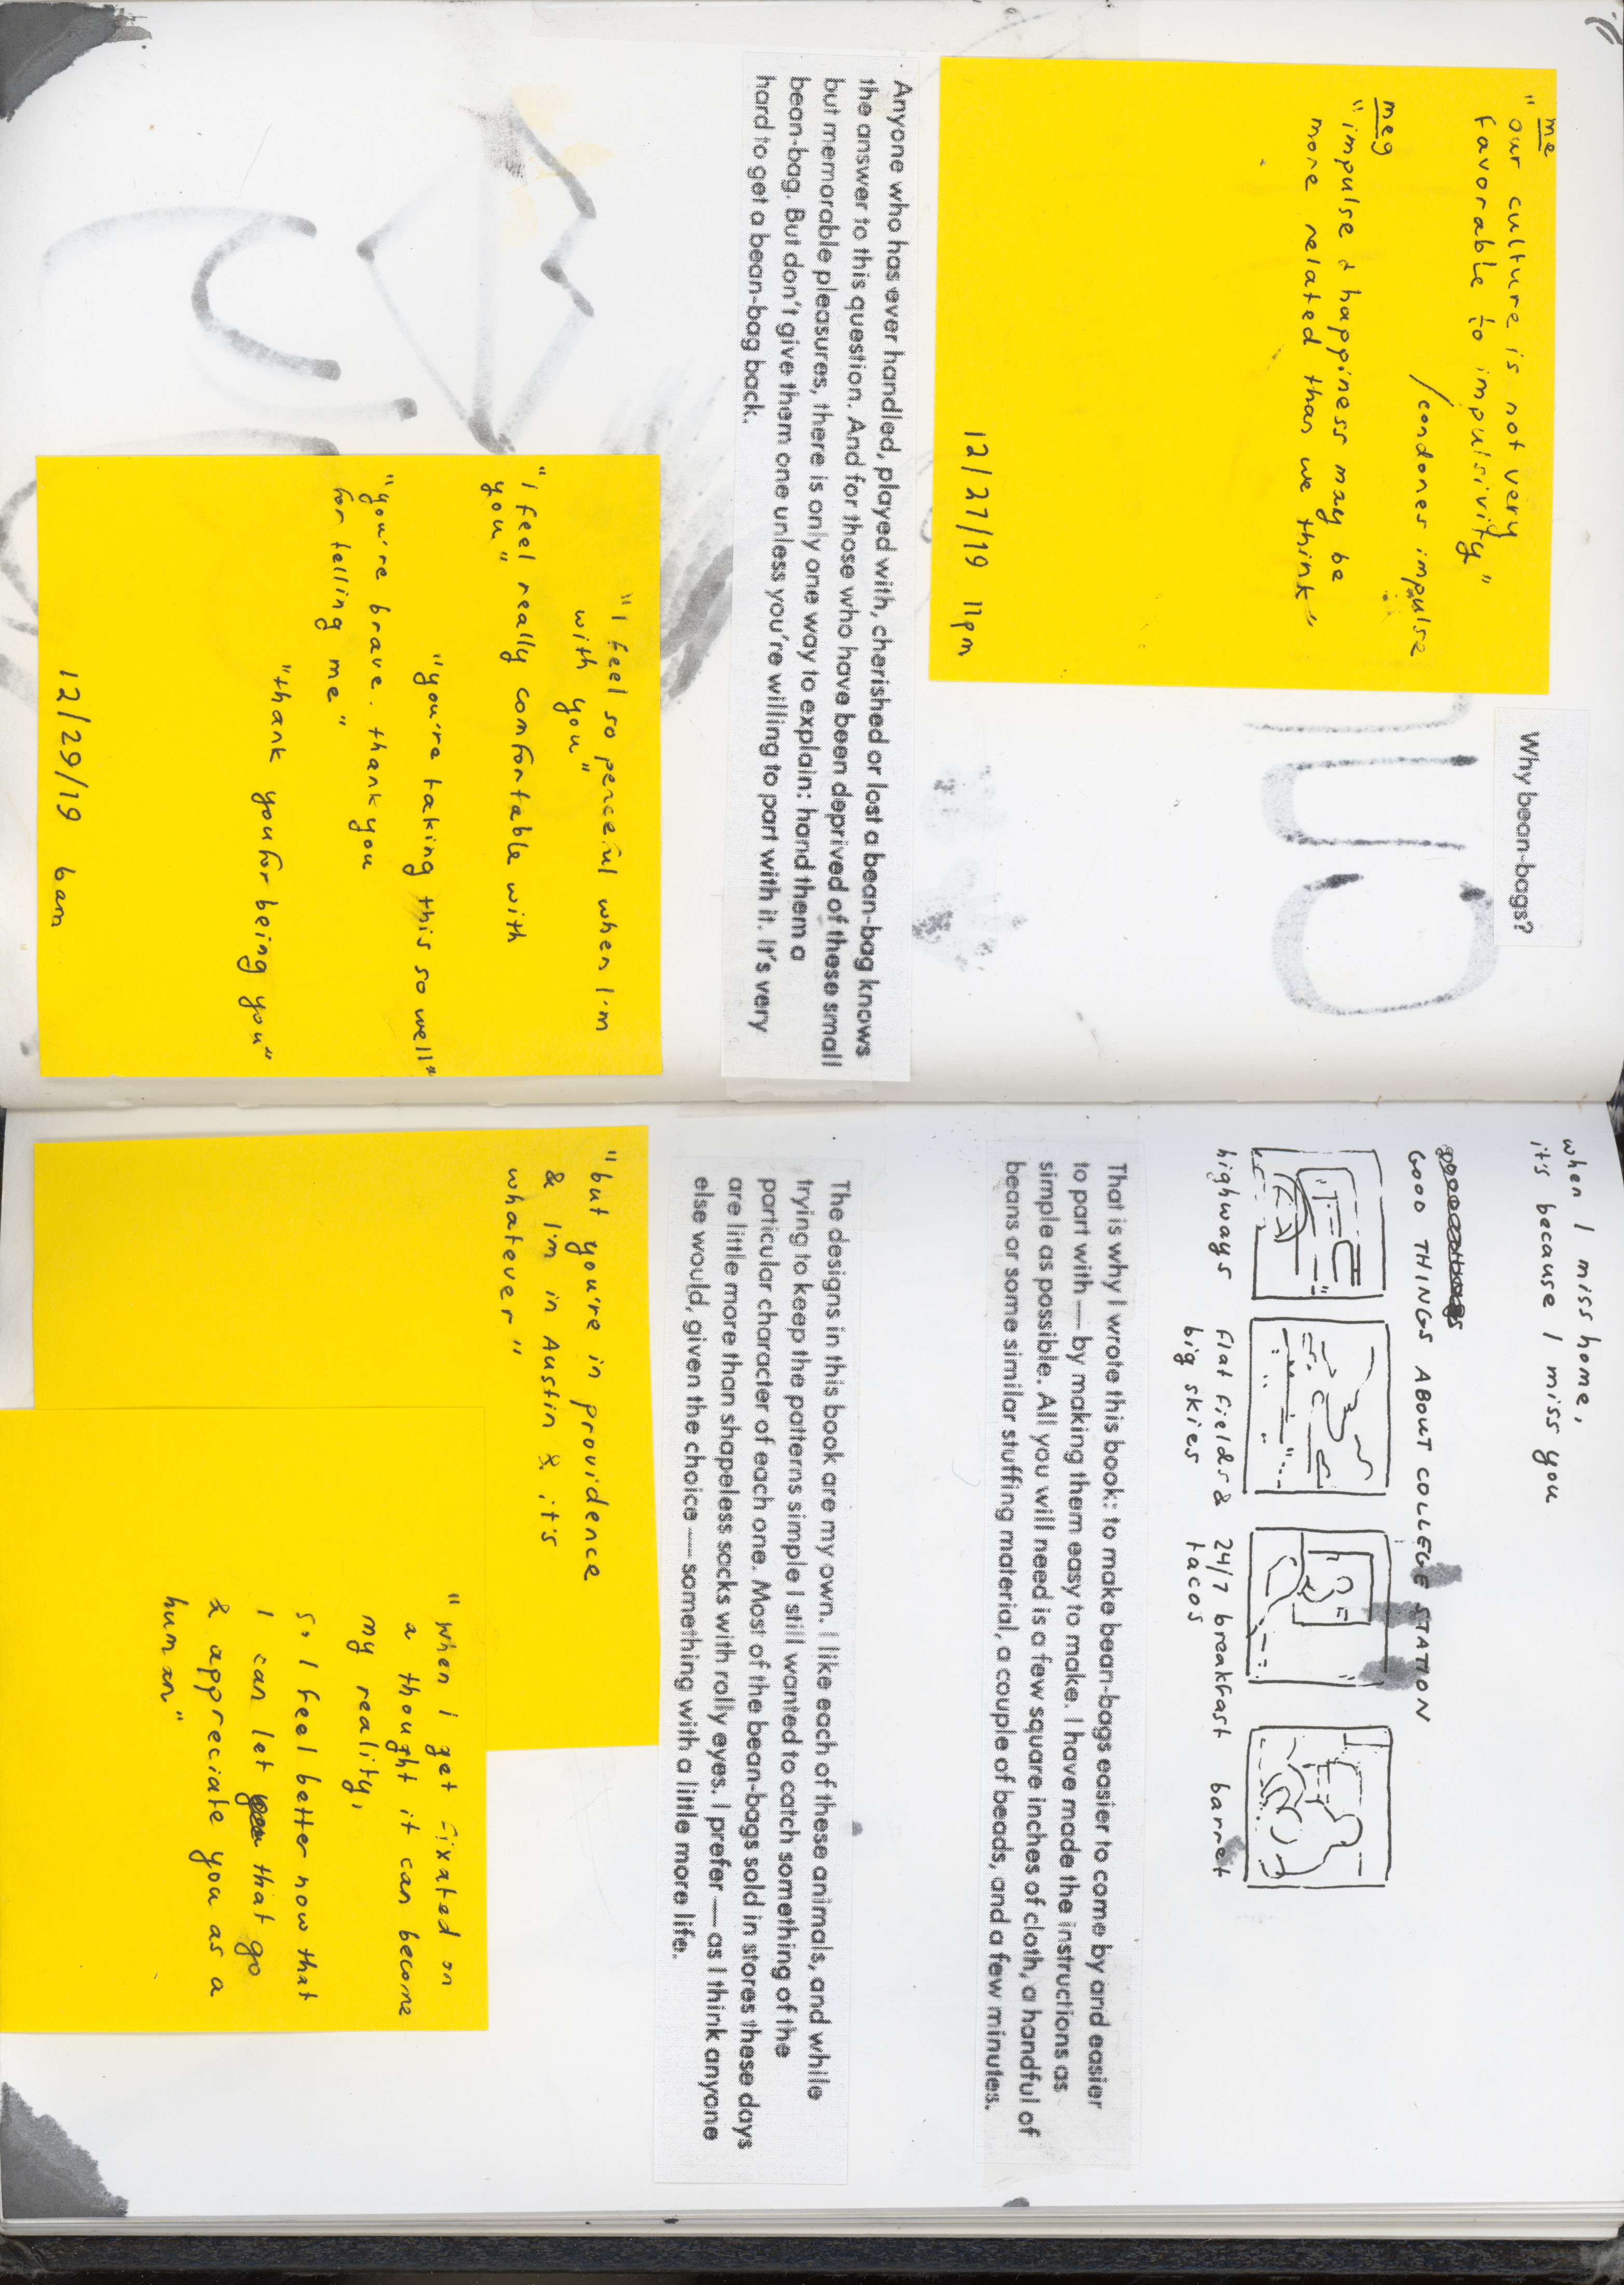 me
"our culture is not very
favorable to impulsivity"
/condones impulse
meg
"impulse & happiness may be
more related than we think"
12/27/19 11pm
Why bean-bags?
Anyone who has ever handled, played with, cherished or lost a bean-bag knows
the answer to this question. And for those who have been deprived of these small
but memorable pleasures, there is only one way to explain: hand them a
bean-bag. But don't give them one unless you're willing to part with it. It's very
hard to get a bean-bag back.
"I feel so peaceful when I'm
with you"
"I feel really comfortable with
you"
"you're taking this so well"
"you're brave. thank you
for telling me"
"thank you for being you"
12/29/19 6am
when I miss home,
it's because I miss you
GOOD THINGS ABOUT COLLEGE STATION
highways
flat fields &
big skies
24/7 breakfast
tacos
barret
That is why I wrote this book: to make bean-bags easier to come by and easier
to part with — by making them easy to make. I have made the instructions as
simple as possible. All you will need is a few square inches of cloth, a handful of
beans or some similar stuffing material, a couple of beads, and a few minutes.
The designs in this book are my own. I like each of these animals, and while
trying to keep the patterns simple I still wanted to catch something of the
particular character of each one. Most of the bean-bags sold in stores these days
are little more than shapeless sacks with rolly eyes. I prefer — as I think anyone
else would, given the choice — something with a little more life.
"but you're in providence
& I'm in Austin & it's
whatever"
"when I get fixated on
a thought it can become
my reality,
so I feel better now that
I can let that go
& appreciate you as a
human"